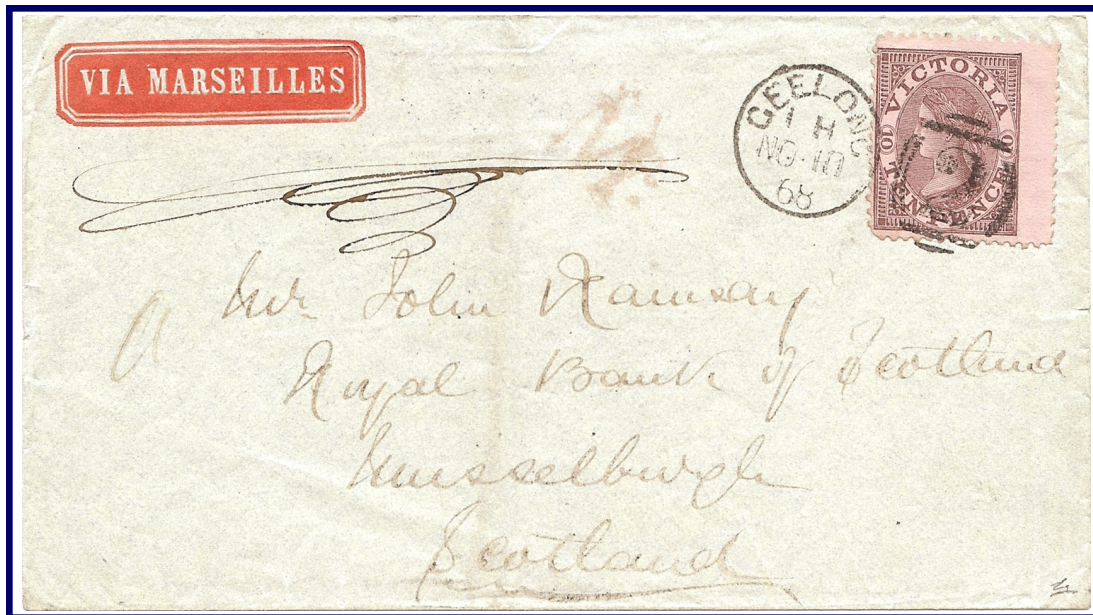 VIA MARSEILLES
GEELONG
1 H
NO·10
68
VICTORIA
10 10
TEN PENCE
Mr John Ramsay
Royal Bank of Scotland
Musselburgh
Scotland